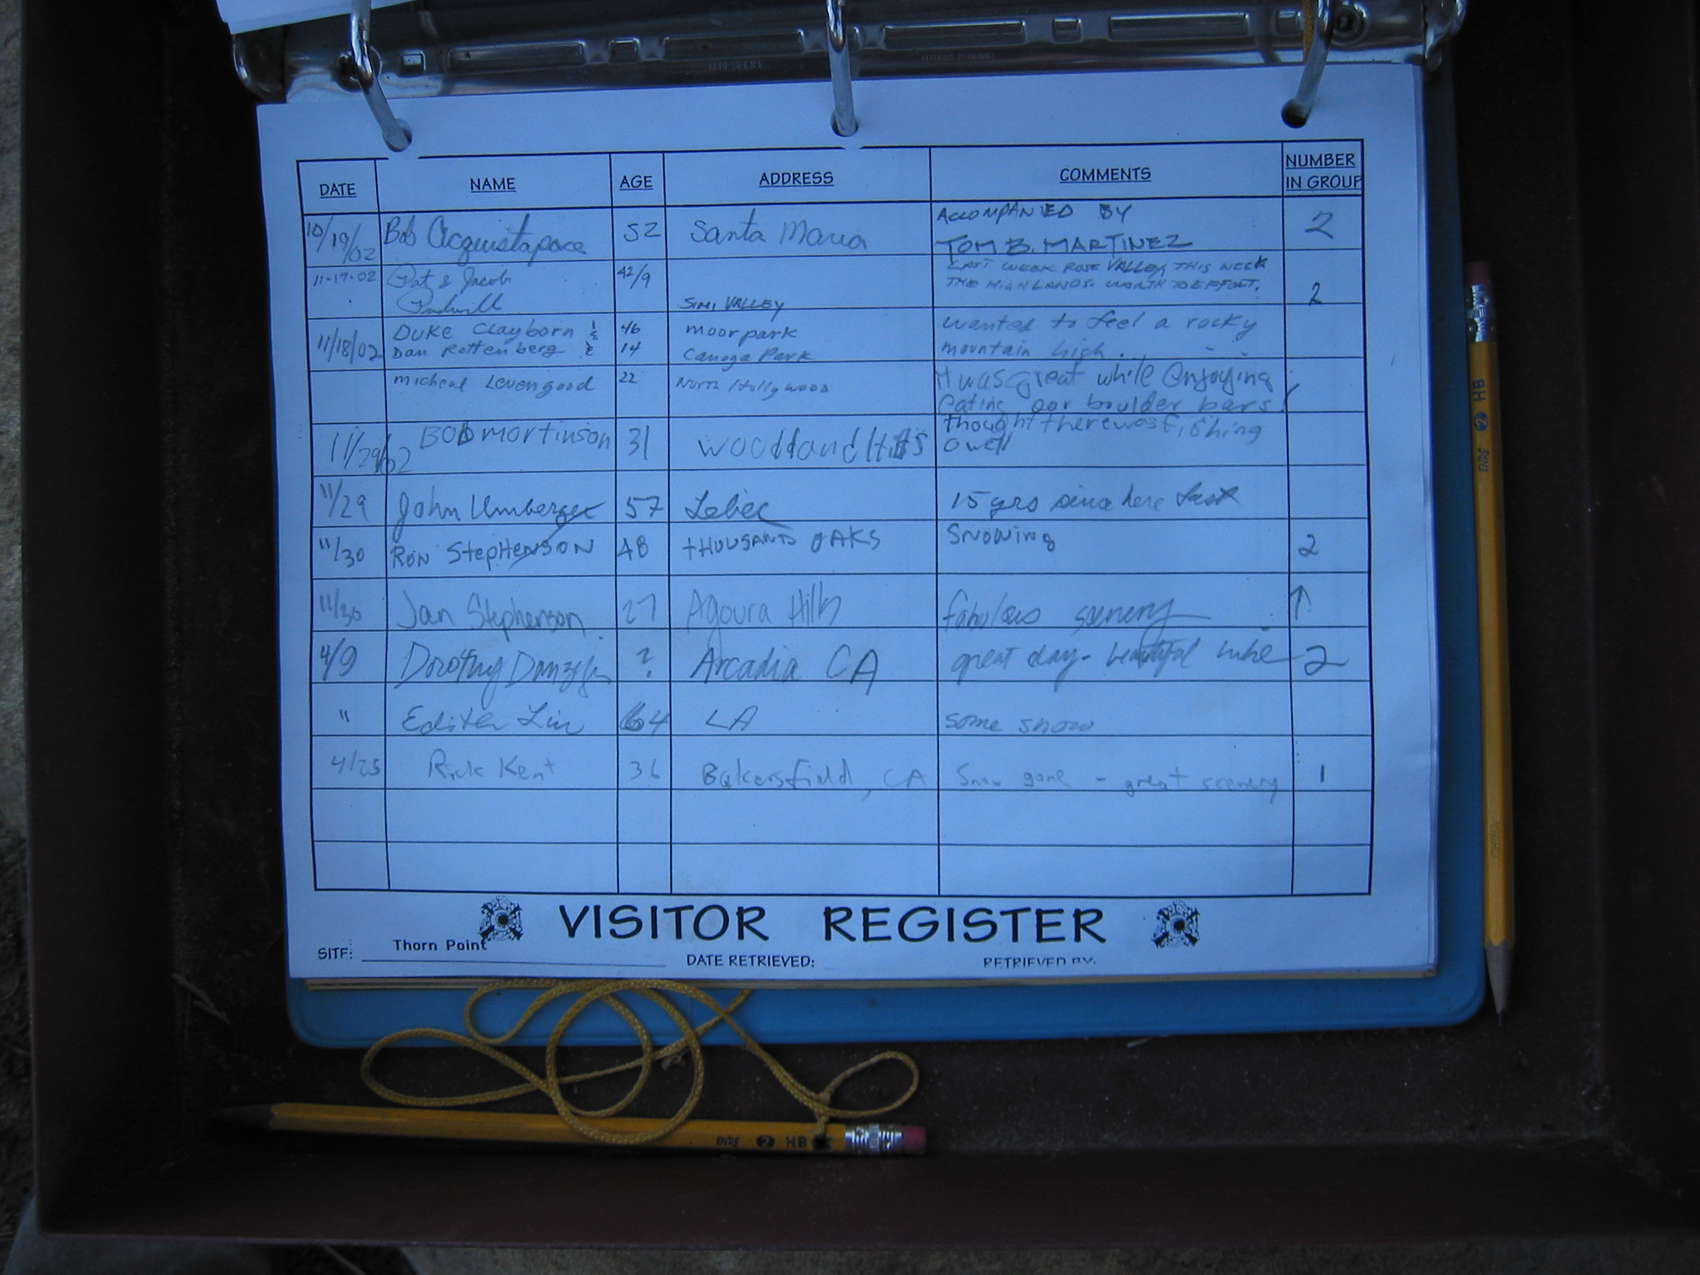 DATE NAME AGE ADDRESS COMMENTS NUMBER IN GROUP
10/19/02 Bob Acquistapace 52 Santa Maria ACCOMPANIED BY TOM B. MARTINEZ 2
11-17-02 Pat & Jacob 42/9 SIMI VALLEY LAST WEEK ROSE VALLEY, THIS WEEK THE HIGHLANDS. WORTH THE EFFORT. 2
11/18/02 DUKE Clayborn & 46 moorpark wanted to feel a rocky
Dan Rottenberg & 14 Canoga Park mountain high...
micheal Levengood 22 North Hollywood It was great while enjoying eating our boulder bars!
11/29/02 BOb mortinson 31 woodland Hills thought there was fishing owell
11/29 John Umberger 57 Lebec 15 yrs since here last
11/30 RON StepHENSON 48 tHOUSAND OAKS SNOWing 2
11/30 Jan Stephenson 27 Agoura Hills fabulous scenery ↑
4/9 Dorothy ? Arcadia CA great day- beautiful hike 2
" Edith Lin 64 LA some snow
4/25 Rick Kent 36 Bakersfield, CA Snow gone - great scenery 1
VISITOR REGISTER
SITE: Thorn Point DATE RETRIEVED: RETRIEVED BY:
HB 2
2 HB